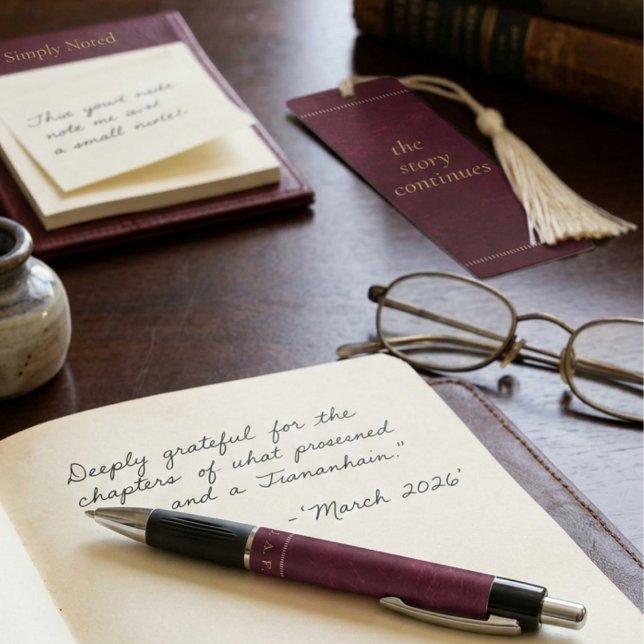 Simply Noted
note me
a small note!
the
story
continues
Deeply grateful for the
chapters of what prosesned
and a Tiananhain."
-'March 2026'
A. F.